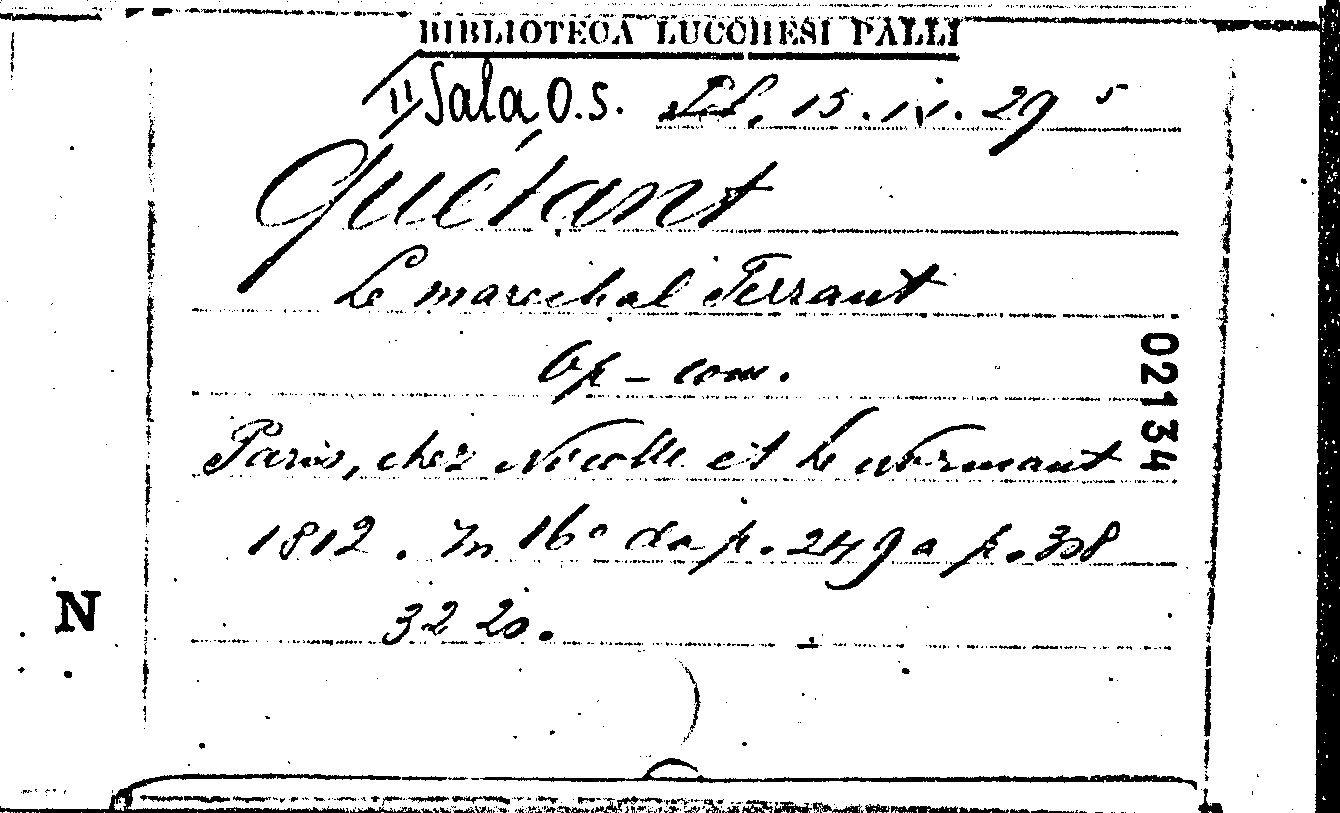 BIBLIOTECA LUCCHESI PALLI
II Sala, O.S. 15. IV. 29 5
Quétant
Le marechal Ferrant
Op-com.
Paris, chez Nicolle et Le Normant
1812. In 16° da p. 249 a p. 308
32 20.
02134
N